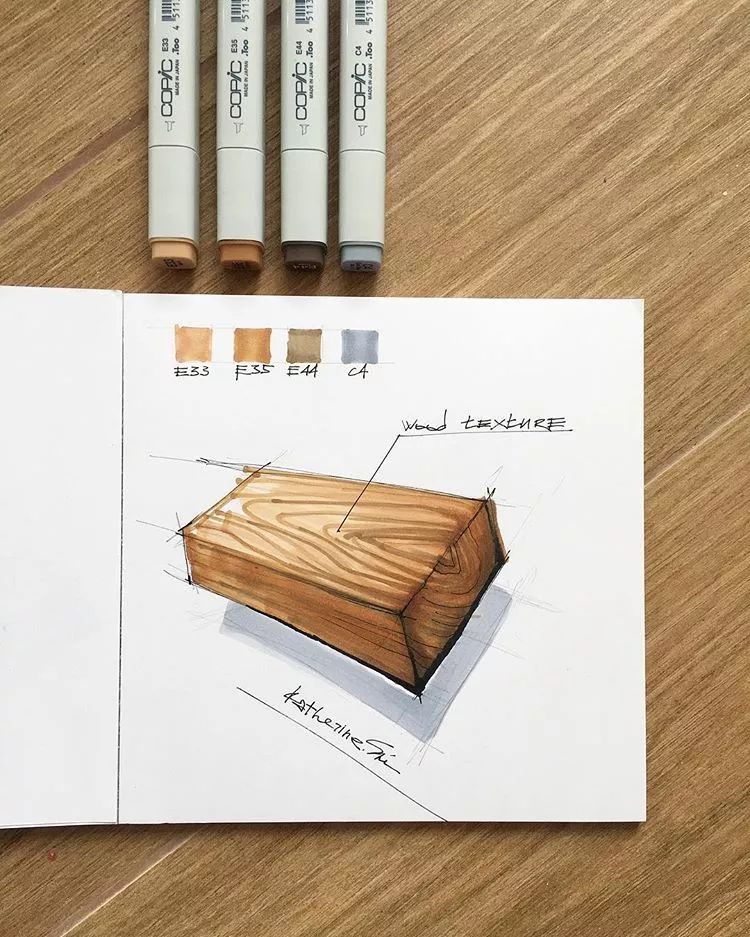 COPIC E33 .Too MADE IN JAPAN 4 5113
COPIC E35 .Too MADE IN JAPAN 4 5113
COPIC E44 .Too MADE IN JAPAN 4 5113
COPIC C4 .Too MADE IN JAPAN 4 5113
E33 E35 E44 C4
wood tEXtURE
Katherine.Shi